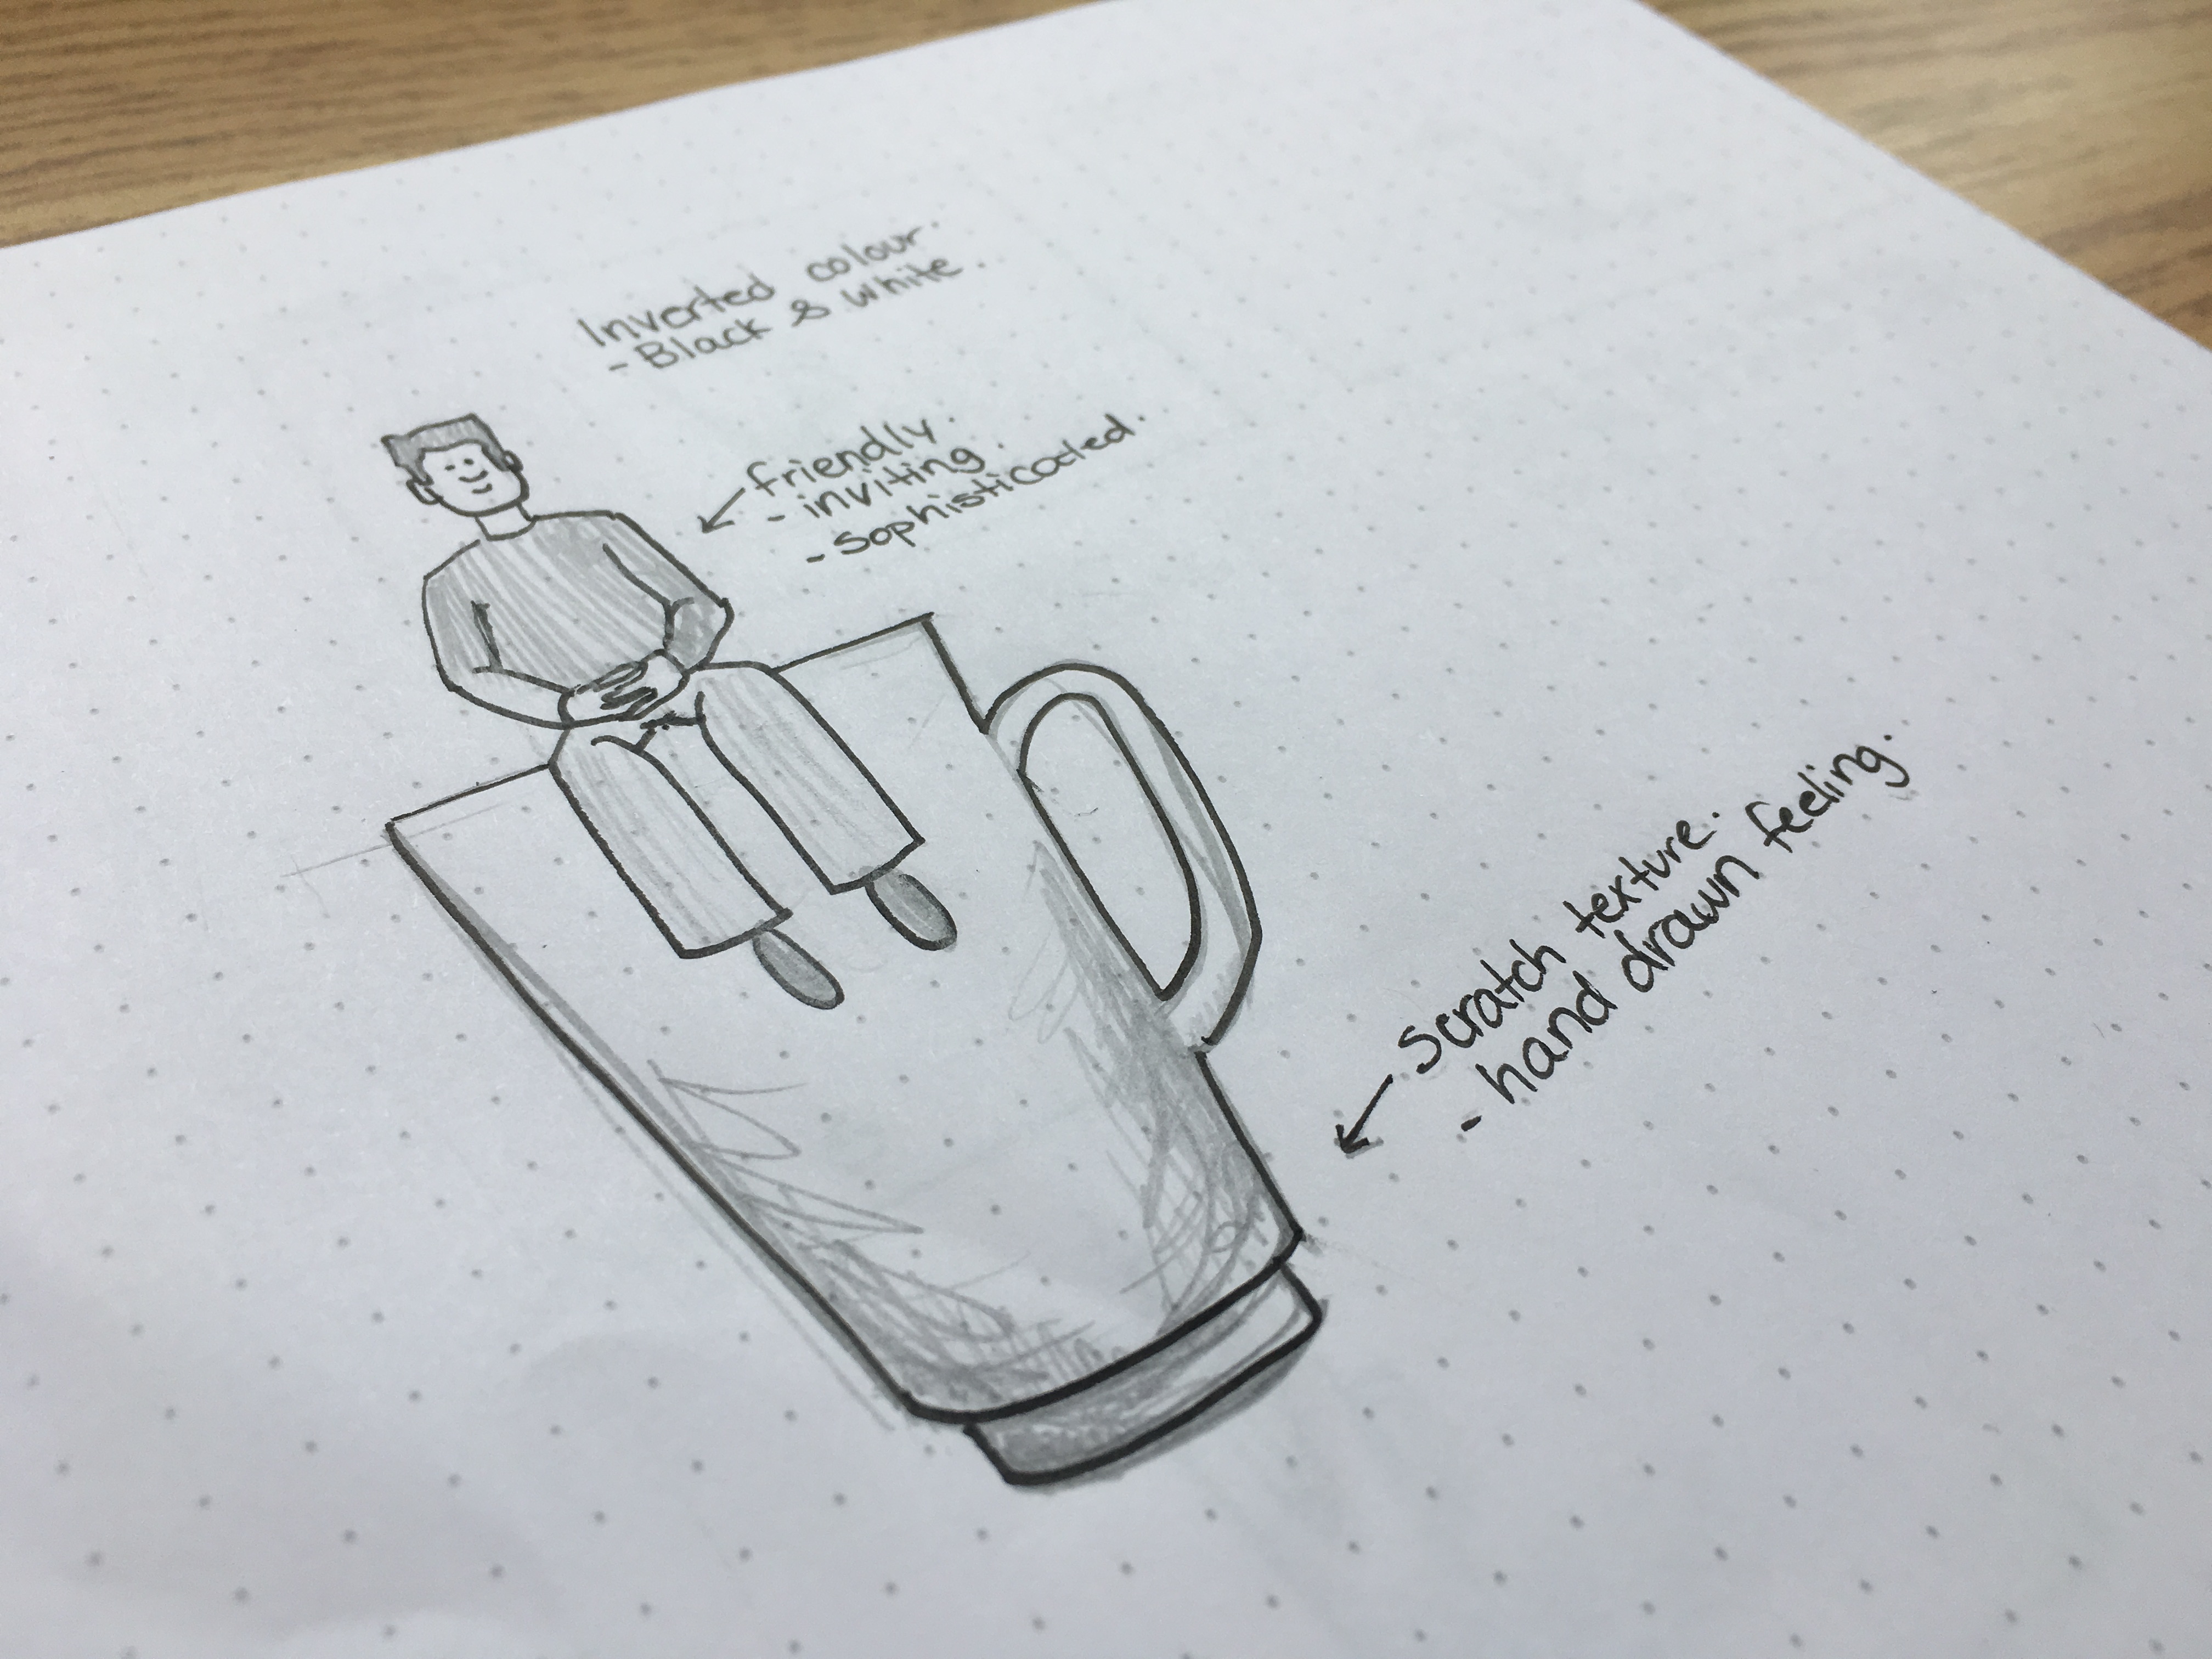 Inverted colour.
- Black & white.
friendly.
- inviting.
- Sophisticated.
Scratch texture.
- hand drawn feeling.